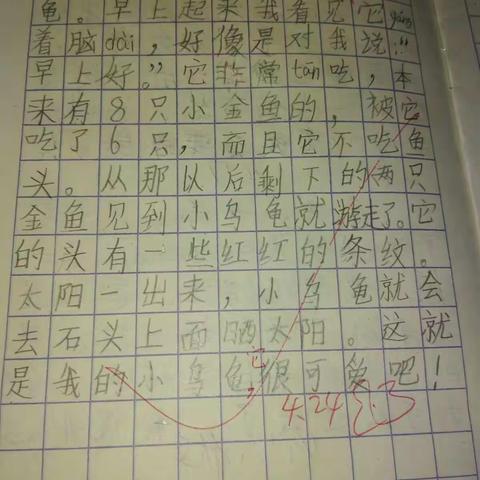 龟。早上起来我看见它yáng
着脑dài，好像是对我说："
早上好。"它非常tān吃，本
来有8只小金鱼的，被它
吃了6只，而且它不吃鱼
头。从那以后剩下的两只
金鱼见到小乌龟就游走了。它
的头有一些红红的条纹。
太阳一出来，小乌龟就会
去石头上面晒太阳。这就
是我的小乌龟，它很可爱吧！
4.24